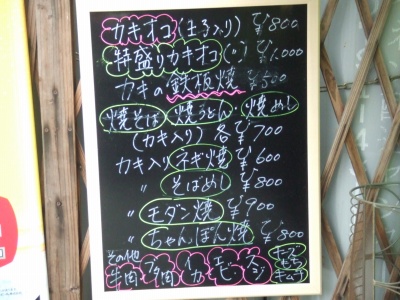 カキオコ(玉子入り) ¥800
特盛りカキオコ(〃) ¥1,000
カキの鉄板焼 ¥500
焼そば・焼うどん・焼めし
(カキ入り) 各¥700
カキ入りネギ焼 ¥600
〃 そばめし ¥800
〃 モダン焼 ¥900
〃 ちゃんぽん焼 ¥800
その他
牛肉 ブタ肉 イカ エビ スジ
チーズ もち キムチ